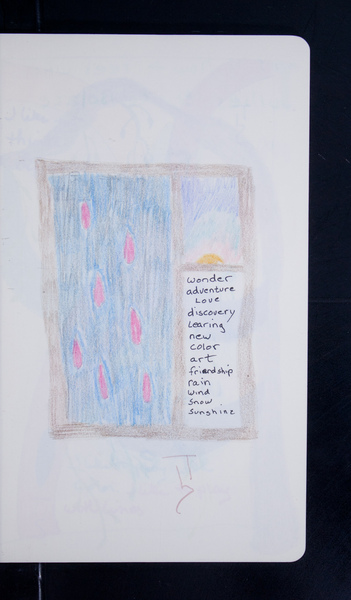 wonder
adventure
Love
discovery
Learing
new
color
art
friendship
rain
wind
snow
sunshine